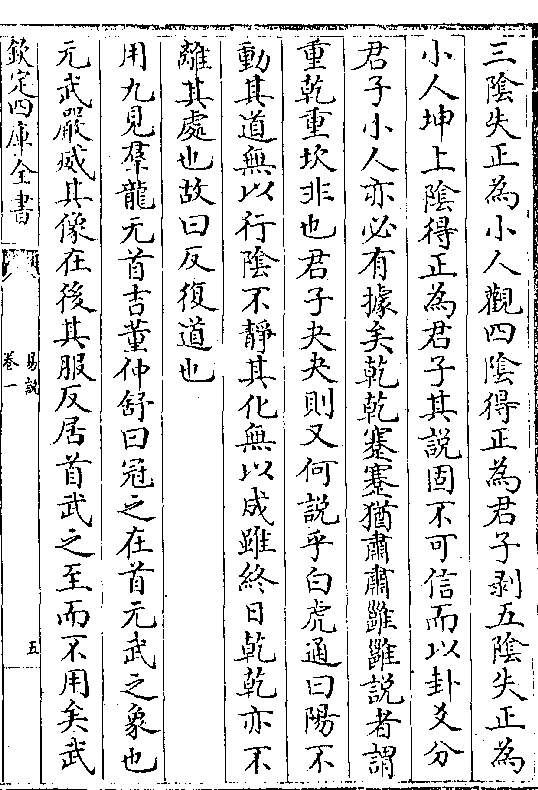 三陰失正為小人觀四陰得正為君子剥五陰失正為
小人坤上陰得正為君子其說固不可信而以卦爻分
君子小人亦必有據矣乾乾蹇蹇猶肅肅雝雝說者謂
重乾重坎非也君子夬夬則又何說乎白虎通曰陽不
動其道無以行陰不靜其化無以成雖終日乾乾亦不
離其處也故曰反復道也
用九見羣龍元首吉董仲舒曰冠之在首元武之象也
元武嚴威其像在後其服反居首武之至而不用矣武
欽定四庫全書
易說
卷一
五